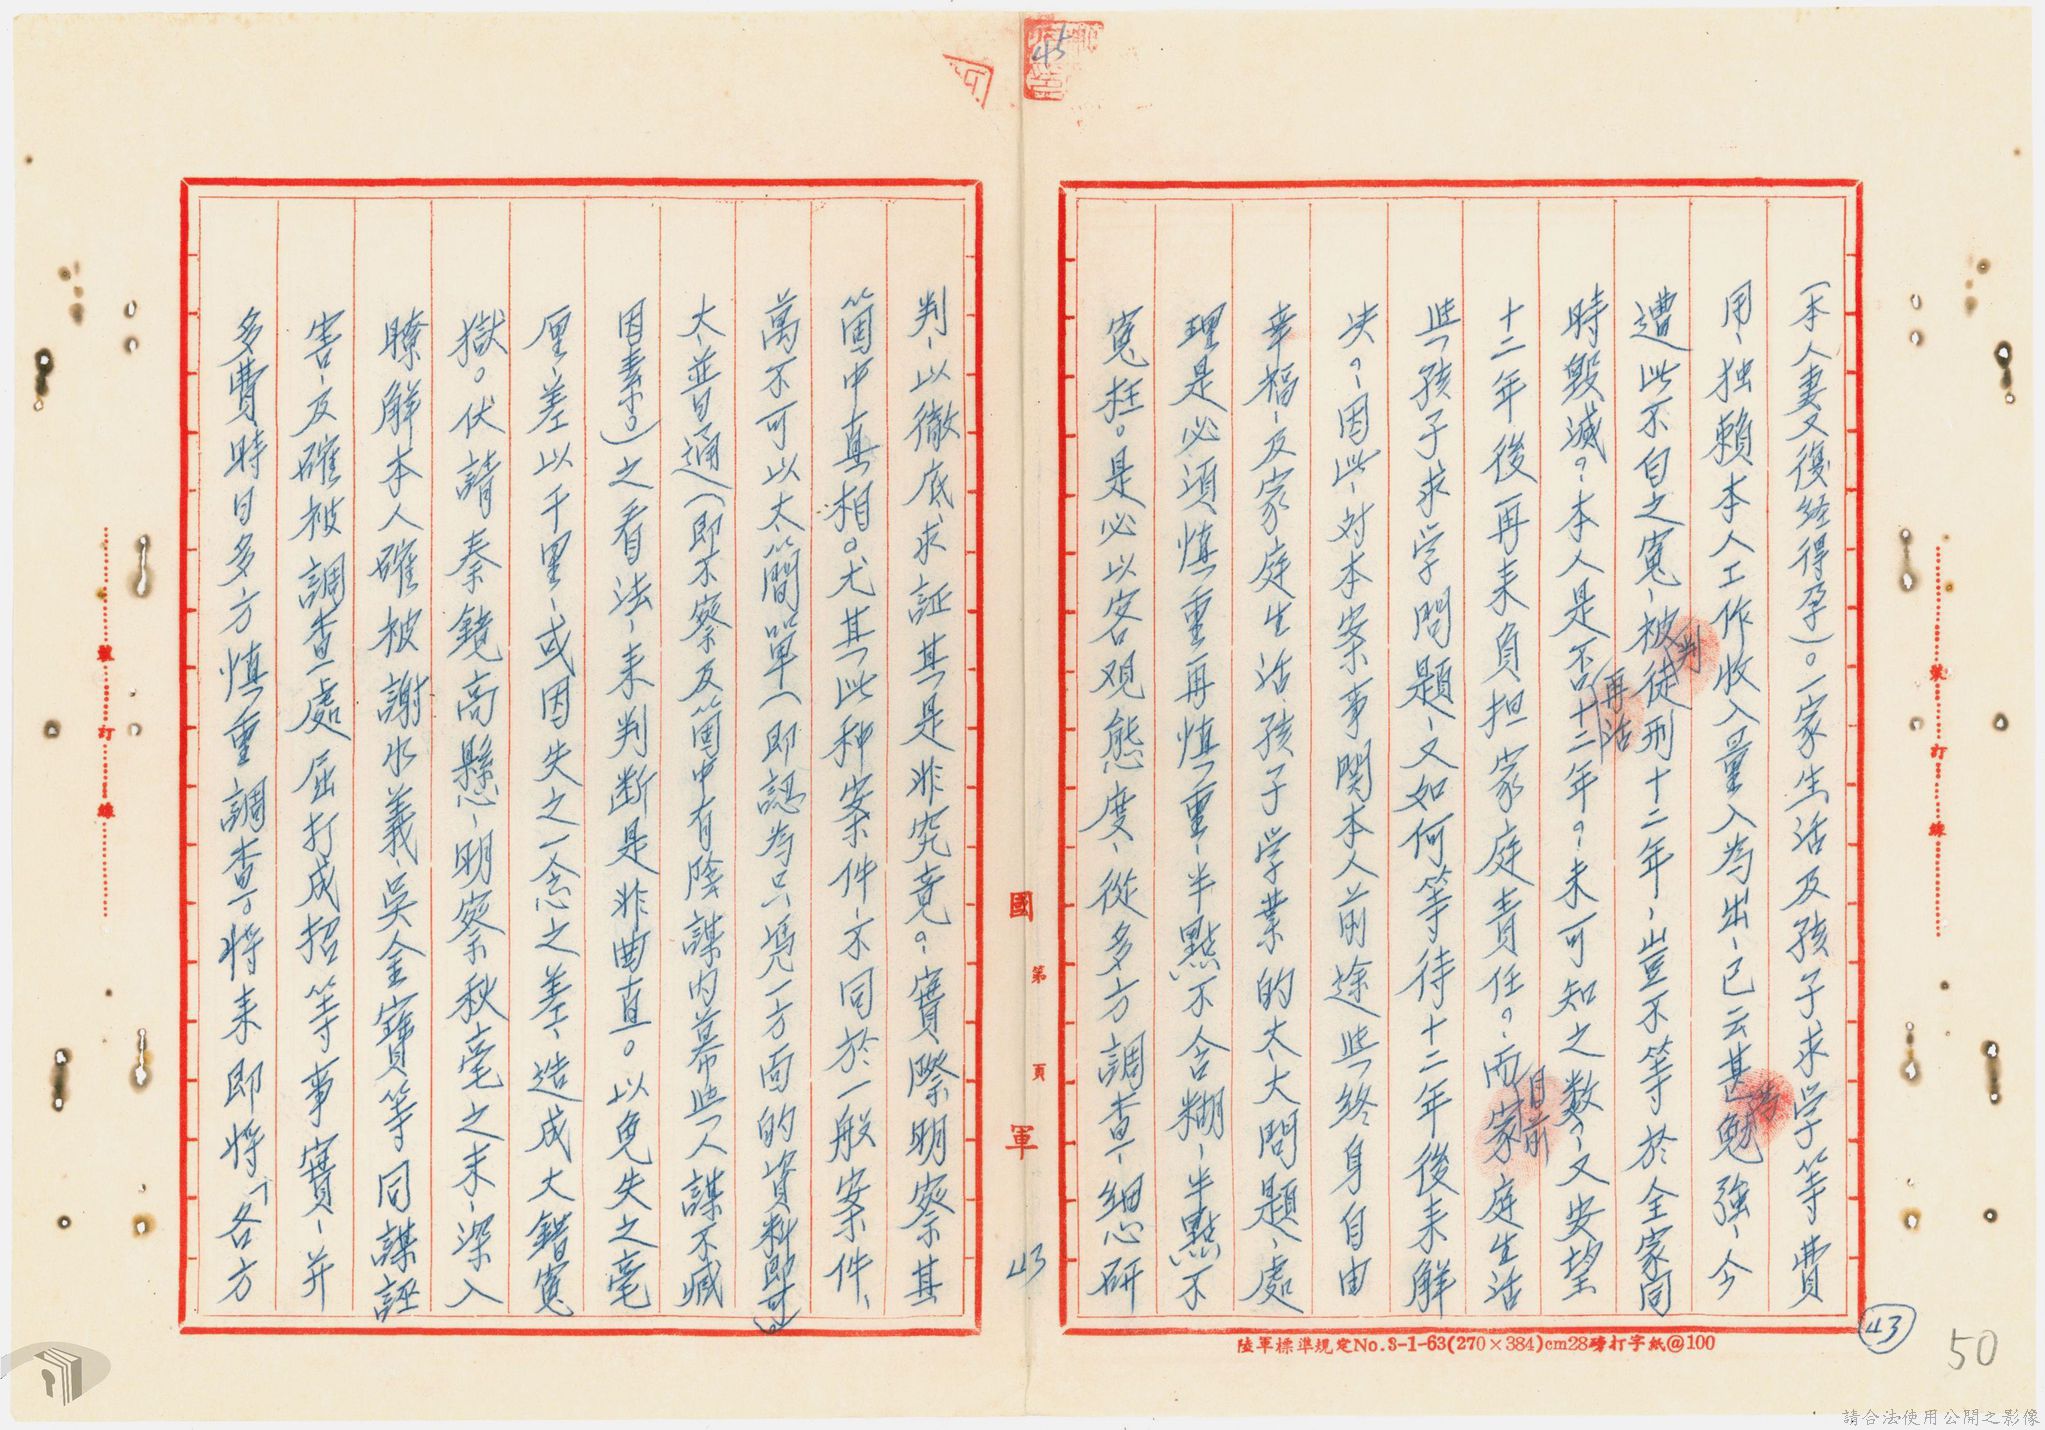 (本人妻又復经得孕)。一家生活及孩子求学等費
用、独賴本人工作收入量入為出、已云甚為勉強、今
遭此不白之寃、被判徒刑十二年、豈不等於全家同
時毀滅?本人是否再活十二年?未可知之数、又安望
十二年後再来負担家庭責任?而目前家庭生活
些孩子求学問題、又如何等待十二年後来解
决?因此、对本案事関本人前途些終身自由
幸福、及家庭生活孩子学業的大大問題、處
理是必須慎重再慎重、半點不含糊、半點不
寃枉。是必以客观態度、從多方調查、細心研
判、以徹底求証其是非究竟?實際明察其
箇中真相。尤其此种案件、不同於一般案件、
萬不可以太簡單(即認為只凭一方面的資料即可)
太普通(即不察及箇中有陰謀内幕些人謀不臧
因素。)之看法、来判断是非曲直。以免失之毫
厘、差以千里、或因失之一念之差、造成大錯寃
獄。伏請秦鏡高懸、明察秋毫之来、深入
瞭解本人確被謝水義、吳金寶等同謀誣
害、及確被調查處屈打成招等事實、并
多費時日多方慎重調查。将来即将「各方
國軍
第 頁
43
43
50
45
裝 訂 線
裝 訂 線
陸軍標準規定No.3-1-63(270×384)cm28磅打字紙@100
請合法使用公開之影像